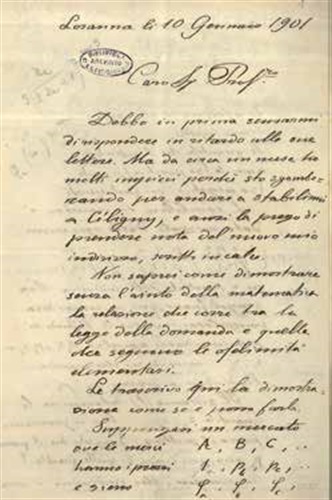 Losanna li 10 Gennaio 1901
Caro Sig Prof.re
Debbo in prima scusarmi
di rispondere in ritardo alle sue
lettere. Ma da circa un mese ho
molti impicci perché sto sgombe-
rando per andare a stabilirmi
a Céligny, e anzi la prego di
prendere nota del nuovo mio
indirizzo, scritto in calce.
Non saprei come dimostrare
senza l'aiuto della matematica
la relazione che corre tra la
legge della domanda e quella
che seguono le ofelimità
elementari.
Le trascrivo qui la dimostra-
zione come se e porre farla.
Suppongasi un mercato
ove le merci A, B, C, ..
hanno i prezzi 1, pb, pc, ..
e siano